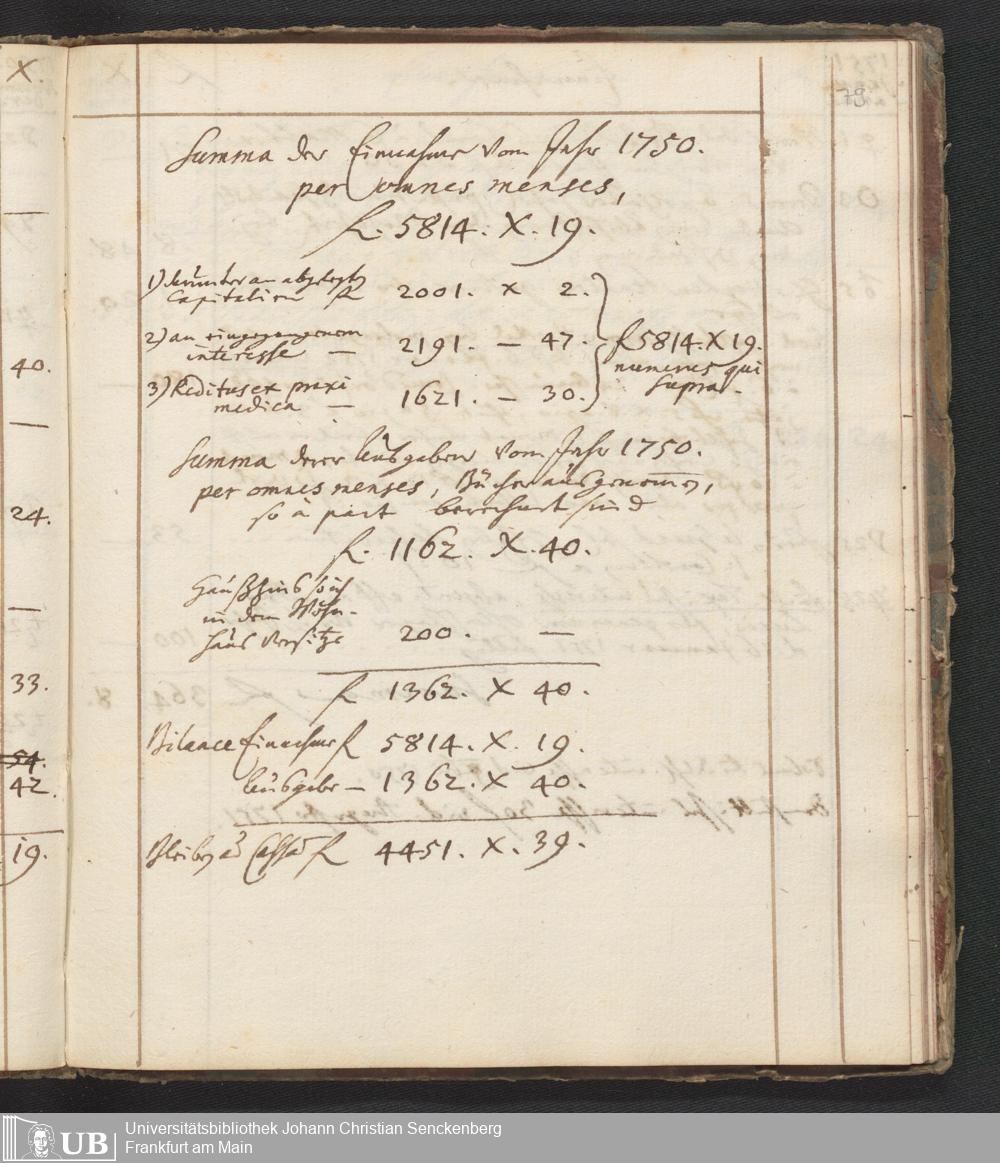 X.
40.
24.
33.
54.
42.
19.
79
Summa der Einnahme vom Jahr 1750.
per omnes menses,
f. 5814. X. 19.
1) darunter an abgelegten
Capitalien f 2001. x 2.
2) an eingegangenem
interesse — 2191. — 47.
3) Reditus ex praxi
medica — 1621. — 30.
f 5814. X 19.
numerus qui
supra.
Summa derer Ausgaben vom Jahr 1750.
per omnes menses, Bücher ausgenomen,
so a part berechnet sind
f. 1162. X. 40.
Haußzins so ich
in dem Wohn-
hauß versitze 200. —
f 1362. X 40.
Bilance Einnahme f 5814. X. 19.
Ausgabe — 1362. X 40.
Bleiben ad Cassa f 4451. X. 39.
UB
Universitätsbibliothek Johann Christian Senckenberg
Frankfurt am Main